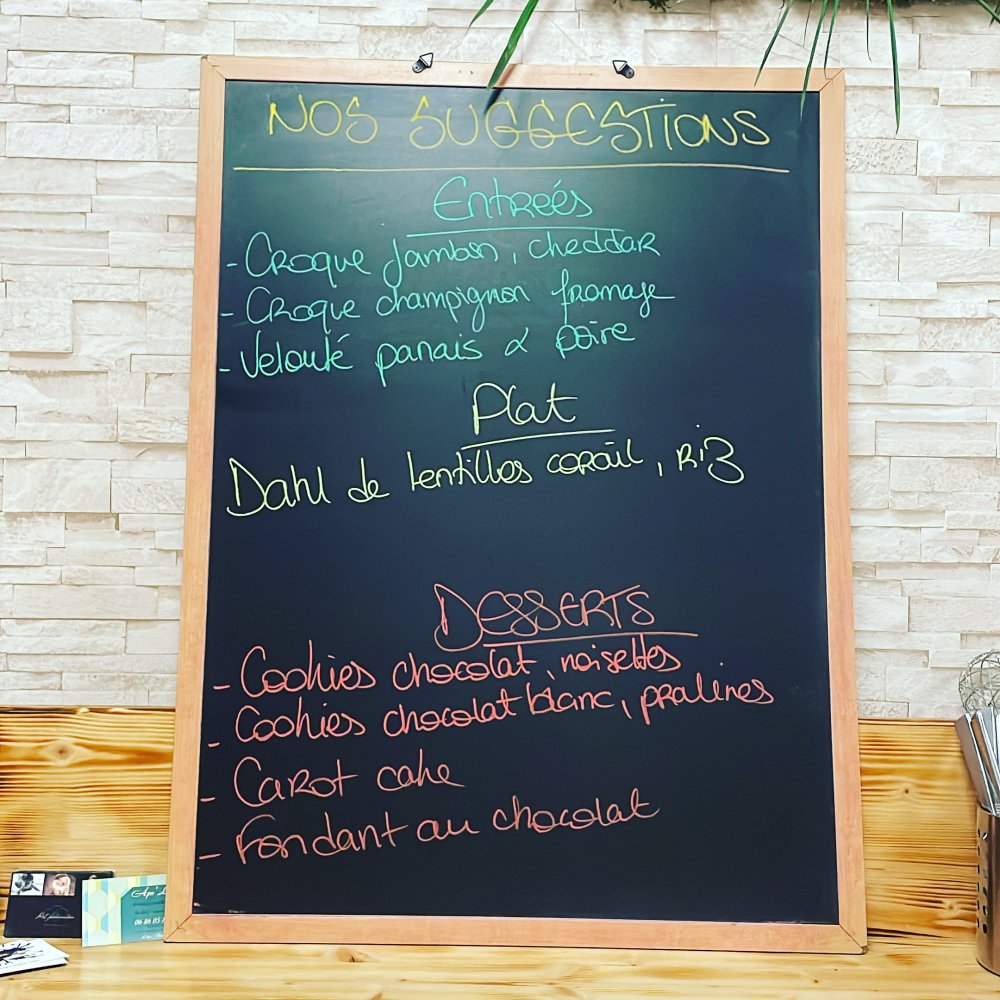 NOS SUGGESTIONS
Entreés
- Croque jambon, cheddar
- Croque champignon fromage
- Velouté panais & poire
Plat
Dahl de lentilles corail, riz
DESSERTS
- Cookies chocolat, noisettes
- Cookies chocolat blanc, pralines
- Carot cake
- Fondant au chocolat
06 86 05